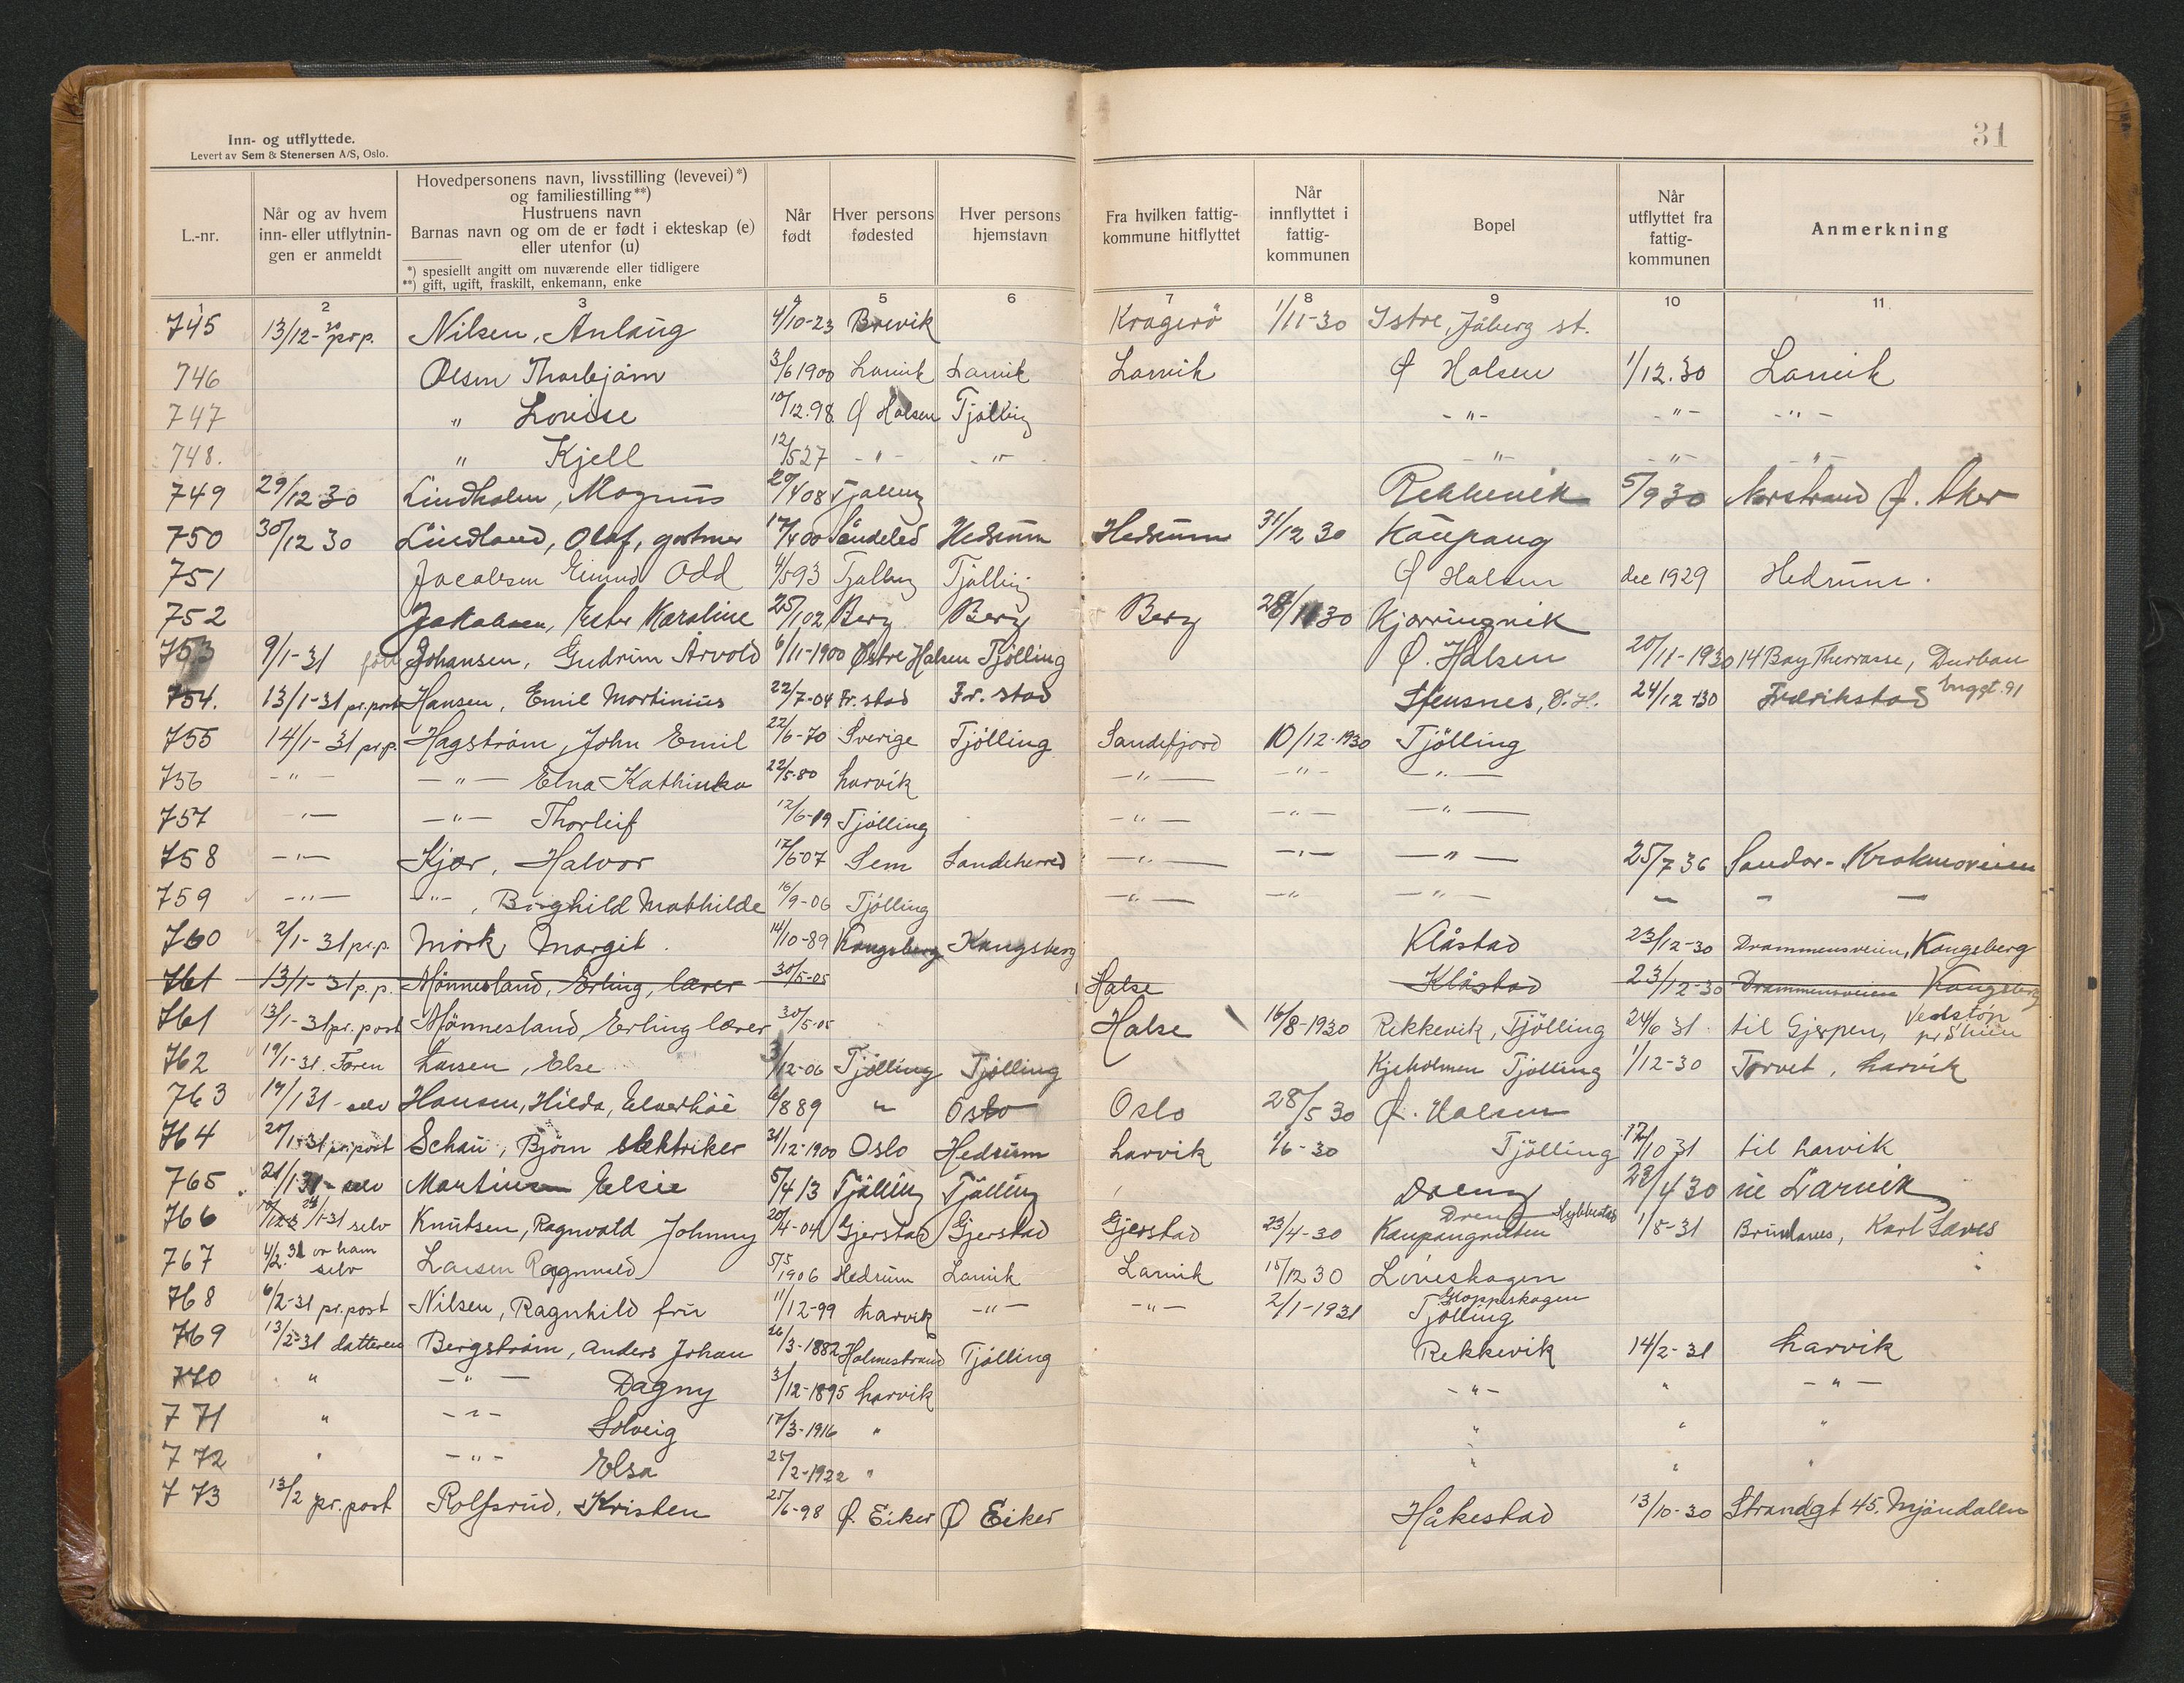 31
Inn- og utflyttede.
Levert av Sem & Stenersen A/S, Oslo.
L.-nr.
Når og av hvem inn- eller utflytnin-gen er anmeldt
Hovedpersonens navn, livsstilling (levevei)*) og familiestilling**)
Hustruens navn
Barnas navn og om de er født i ekteskap (e) eller utenfor (u)
*) spesiellt angitt om nuværende eller tidligere
**) gift, ugift, fraskilt, enkemann, enke
Når født
Hver persons fødested
Hver persons hjemstavn
Fra hvilken fattig-kommune hitflyttet
Når innflyttet i fattig-kommunen
Bopel
Når utflyttet fra fattig-kommunen
Anmerkning
1 2 3 4 5 6 7 8 9 10 11
745 13/12-30 pr p. Nilsen, Anlaug 4/10-23 Brevik Kragerö 1/11-30 Istre, Jåberg st.
746 Olsen Thorbjørn 3/6 1900 Larvik Larvik Larvik Ø Halsen 1/12.30 Larvik
747 " Lovise 10/12.98 Ø Halsen Tjølling -"- -"- -"-
748. " Kjell 12/5 27 -"- -"- -"- -"- -"-
749 29/12 30 Lindholm, Magnus 29/4 08 Tjølling Rekkevik 5/9 30 Norstrand Ø. Aker
750 30/12 30 Lindland, Olaf, gartner 17/4 00 Søndeled Hedrum Hedrum 31/12 30 Kaupang
751 Jacobsen Odd 4/5 93 Tjølling Tjølling Ø Halsen dec 1929 Hedrum.
752 Jakobsen, Ester Karoline 25/1 02 Berg Berg Berg 28/11 30 Kjørringvik
753 9/1-31 Johansen, Gudrun Arvold 6/11-1900 Østre Halsen Tjølling Ø. Halsen 20/11-1930 14 Bay Therrasse, Durban
754. 13/1-31 pr. post Hansen, Emil Martinius 22/7-04 Fr. stad Fr. stad Stensnes, Ø. H. 24/12-30 Fredrikstad Enggt. 91
755 14/1-31 pr.p. Hagström, John Emil 22/6-70 Sverige Tjölling Sandefjord 10/12-1930 Tjölling
756 -"- -"- Elna Kathinka 22/5-80 Larvik -"- -"- -"-
757 -"- -"- Thorleif 12/6-19 Tjölling -"- -"- -"-
758 -"- Kjær, Halvor 17/6-07 Sem Sandeherred -"- -"- -"- 25/7 36 Sandar - Krokmoveien
759 -"- -"-, Borghild Mathilde 16/9-06 Tjölling -"- -"- -"- - - -
760 2/1-31 pr.p. Mörk, Margit. 14/10-89 Kongsberg Kongsberg Klåstad 23/12-30 Drammensveien, Kongsberg
761 13/1-31 p.p. Månnesland, Erling, lærer 30/5-05 Halse Klåstad 23/12-30 Drammensveien Kongsberg
761 13/1-31 pr. post Månnesland Erling lærer 30/5-05 Halse 16/8-1930 Rekkevik, Tjölling 24/6 31 til Gjerpen, Vestsiøp pr Skien
762 19/1-31. Faren Larsen, Else 3/12-06 Tjölling Tjölling Kjeholmen Tjölling 1/12-30 Torvet, Larvik
763 19/1 31 - selv Hansen, Hilda, Elverhöi 6/8 89 " Oslo Oslo 28/5 30 Ø. Halsen
764 20/1-31 pr. post Schau, Björn elektriker 31/12-1900 Oslo Hedrum Larvik 1/6-30 Tjölling 12/10 31 til Larvik
765 21/1 31 - selv Martinsen Elsie 5/4 13 Tjölling Tjölling Dreng 23/4 30 Larvik
766 24/1-31 selv Knutsen, Ragnvald Johnny 20/4-04 Gjerstad Gjerstad Gjerstad 23/4-30 Kaupangruten Dreng 1/5-31 Brunlanes, Karl Saves
767 4/2. 31 av ham selv Larsen Ragnvald 5/5 1906 Hedrum Larvik Larvik 15/12 30 Löveskogen
768 6/2-31 pr. post Nilsen, Ragnhild fru 11/12-99 Larvik -"- -"- 2/1-1931 Gloppeskogen Tjölling
769 13/2-31 datteren Bergström, Anders Johan 26/3-1882 Holmestrand Tjölling Rekkevik 14/2-31 Larvik
770 " -"- Dagny 3/12-1895 Larvik -"- " -"-
771 " -"- Solveig 17/3-1916 " " " "
772 " -"- Elsa 25/2-1922 " " " "
773 13/2 pr. post Rolfsrud, Kristen 25/6-98 Ø. Eiker Ø Eiker Håkestad 13/10-30 Strandgt 45. Mjöndalen